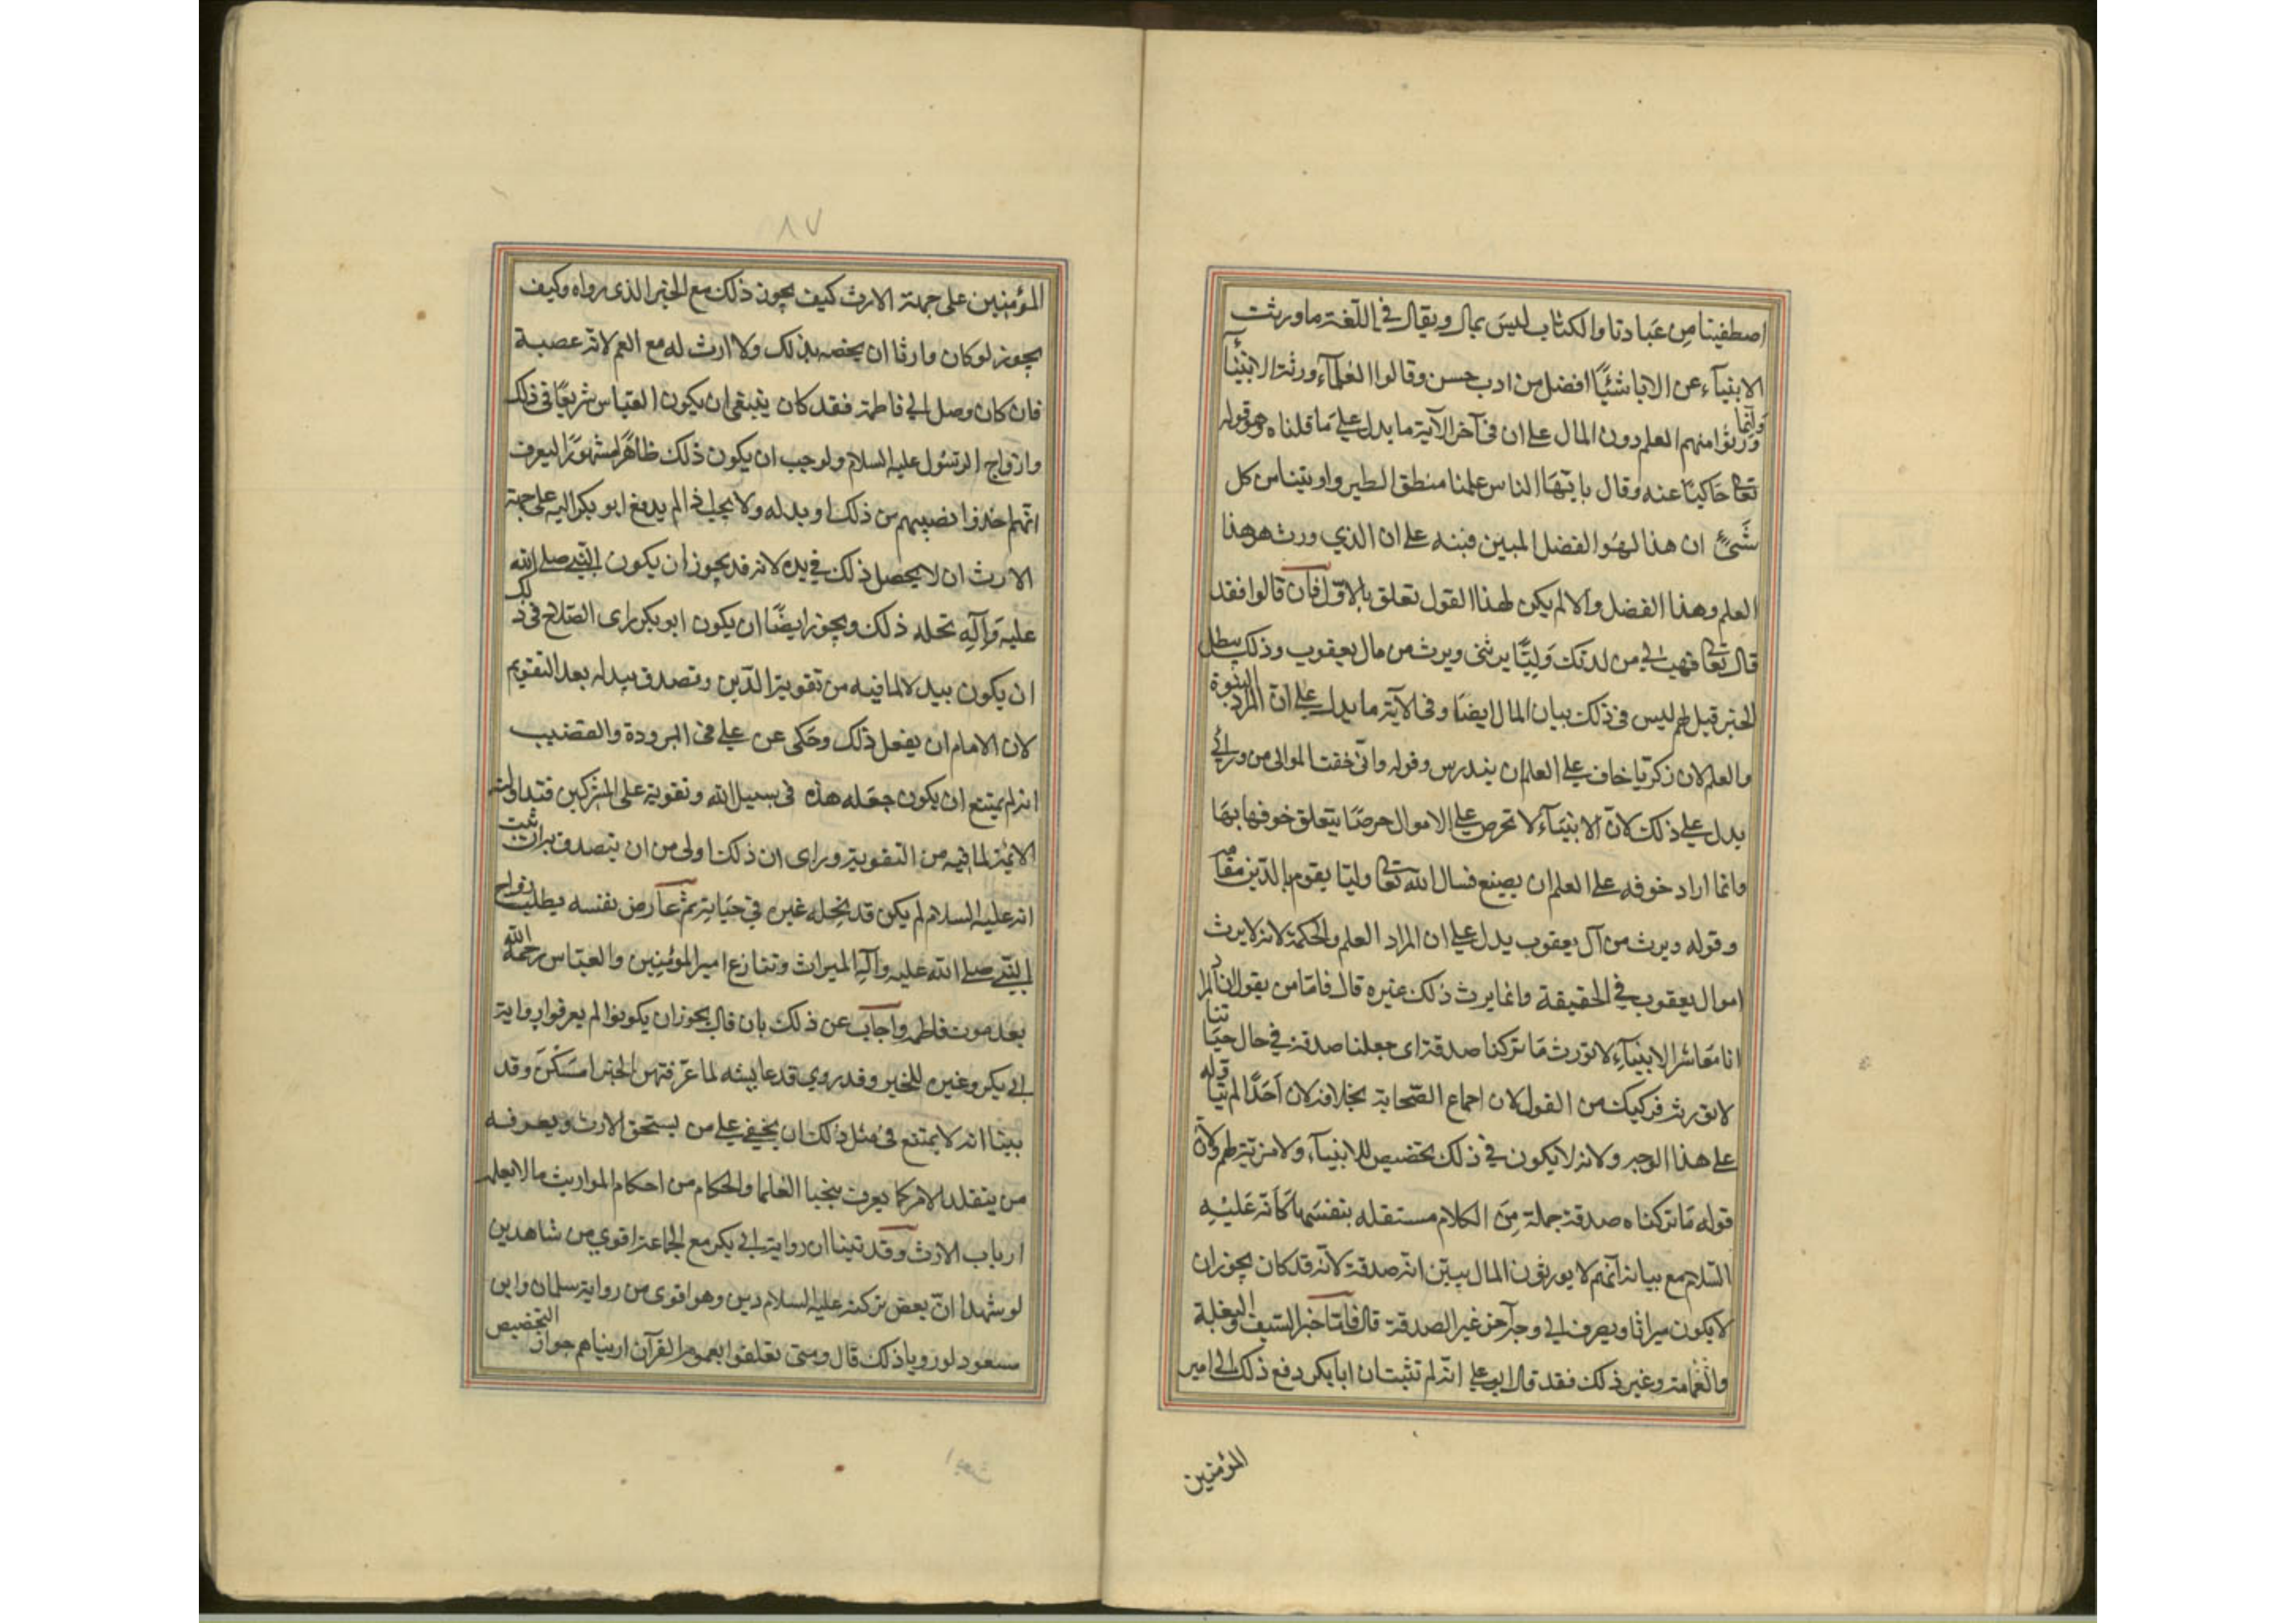 اصطفينا من عبادنا والكتاب ليس بمال ويقال في اللغة ما ورثت
الانبياء عن الاباء شيئا افضل من ادب حسن وقالوا العلماء ورثة الانبياء
وانما ورثوا منهم العلم دون المال على ان في آخر الآية ما يدل على ما قلناه وهو قوله
تعالى حاكيا عنه وقال يا ايها الناس علمنا منطق الطير واوتينا من كل
شئ ان هذا لهو الفضل المبين فنبه على ان الذي ورث هو هذا
العلم وهذا الفضل والا لم يكن لهذا القول تعلق بالاول فان قالوا فقد
قال تعالى فهب لي من لدنك وليا يرثني ويرث من مال يعقوب وذلك يبطل
الخبر قيل لهم ليس في ذلك بيان المال ايضا وفي الآية ما يدل على ان المراد النبوة
والعلم لان زكريا خاف على العلم ان يندرس وقوله واني خفت الموالي من ورائي
يدل على ذلك لان الانبياء لا تحرص على الاموال حرصا يتعلق خوفها بها
وانما اراد خوفه على العلم ان يضيع فسال الله تعالى وليا يقوم بالدين مقامه
وقوله ويرث من آل يعقوب يدل على ان المراد العلم والحكمة لانه لا يرث
اموال يعقوب في الحقيقة وانما يرث ذلك غيره قال فاما من يقول ان المراد
انا معاشر الانبياء لا نورث ما تركنا صدقة اى جعلنا صدقة في حال حياتنا
لا نورثه فركيك من القول لان اجماع الصحابة بخلافه لان احدا لم يتاوله
على هذا الوجه ولانه لا يكون في ذلك تخصيص للانبياء ولا مزية لهم ولان
قوله ما تركناه صدقة جملة من الكلام مستقله بنفسها كانه عليه
السلام مع بيانه انهم لا يورثون المال يبين انه صدقة لانه قد كان يجوز ان
لا يكون ميراثا ويصرف الى وجه آخر غير الصدقة قال فاما خبر السيف والبغلة
والعمامة وغير ذلك فقد قال ابو على انه لم تثبت ان ابا بكر دفع ذلك الى امير
المؤمنين
٨٧
المؤمنين على جهة الارث كيف يجوز ذلك مع الخبر الذى رواه وكيف
يجوز لو كان وارثا ان يخصه بذلك ولا ارث له مع العم لانه عصبة
فان كان وصل الى فاطمة فقد كان ينبغى ان يكون العباس شريكا في ذلك
وازواج الرسول عليه السلام ولوجب ان يكون ذلك ظاهرا مشهورا ليعرف
انهم اخذوا نصيبهم من ذلك او بدله ولا يجب اذا لم يدفع ابو بكر اليه على جهة
الارث ان لا يحصل ذلك في يده لانه قد يجوز ان يكون النبي صلى الله
عليه وآله نحله ذلك ويجوز ايضا ان يكون ابو بكر راى الصلاح في ذلك
ان يكون بيده لما فيه من تقوية الدين وتصدق ببدله بعد التقويم
لان الامام ان يفعل ذلك وحكى عن على في البرودة والقضيب
انه لم يمتنع ان يكون جعله هذه في سبيل الله وتقوية على المشركين فتداولته
الائمة لما فيه من التقوية وراى ان ذلك اولى من ان يتصدق به ان ثبت
انه عليه السلام لم يكن قد نحله غيره في حياته ثم عارض نفسه بطلب ازواج
النبي صلى الله عليه وآله الميراث وتنازع امير المؤمنين والعباس رحمه الله
بعد موت فاطمه واجاب عن ذلك بان قال يجوز ان يكونوا لم يعرفوا رواية
ابى بكر وغيره للخبر وقد روي قد عايشه لما عرفتهن الخبر امسكن وقد
بينا انه لا يمتنع في مثل ذلك ان يخفى على من يستحق الارث ويعرفه
من يتقلد الامر كما يعرف العلما والحكام من احكام المواريث ما لا يعلمه
ارباب الارث وقد بينا ان رواية ابى بكر مع الجماعة اقوى من شاهدين
لو شهدا ان بعض تركته عليه السلام دين وهو اقوى من رواية سلمان وابن
مسعود لو رويا ذلك قال ومتى تعلقوا بعموم القرآن اريناهم جواز التخصيص